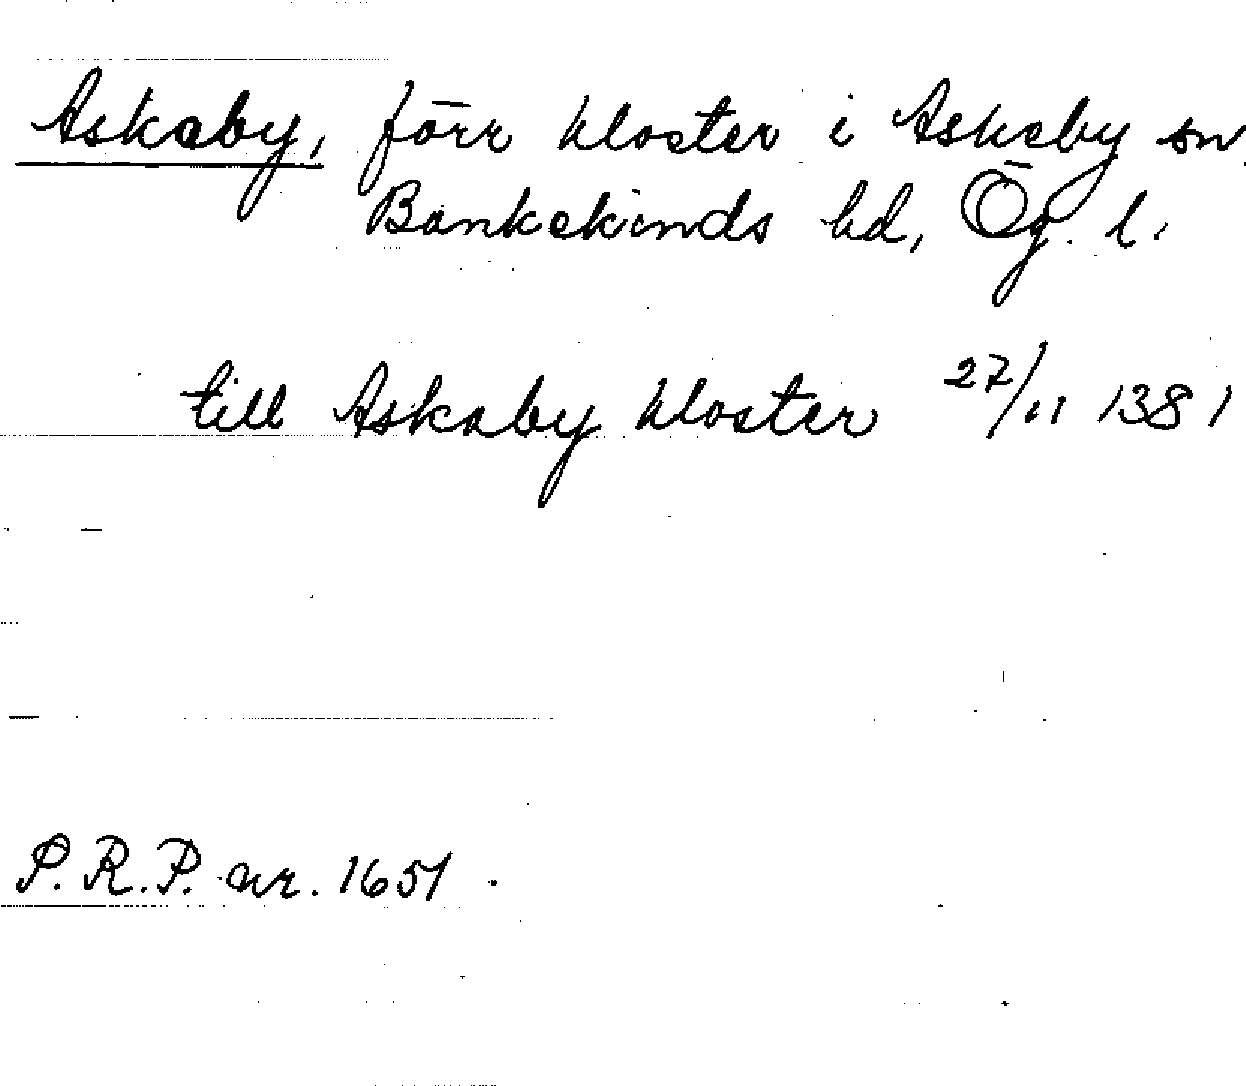 Askaby, förr kloster i Askeby sn
Bankekinds hd, Ög. l.
till Askaby kloster 27/11 1381
S.R.P. nr. 1651.